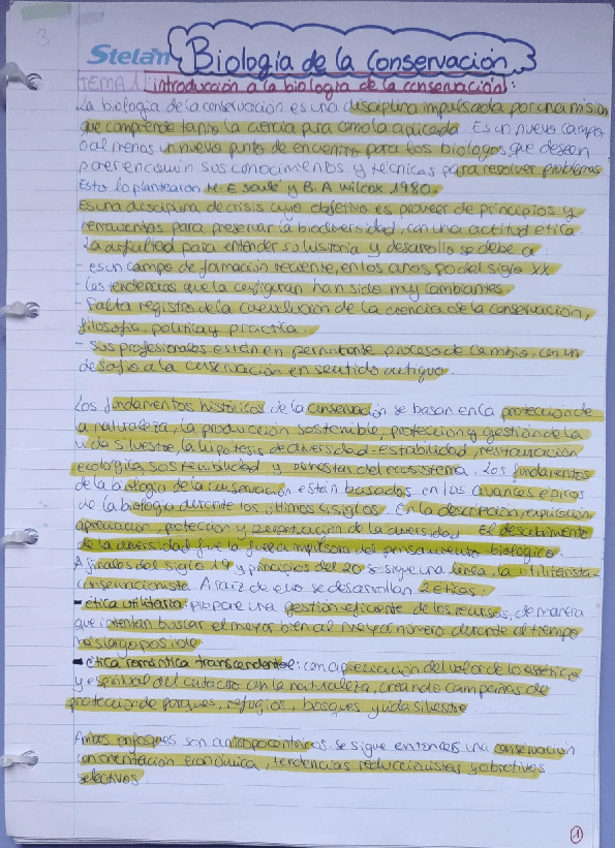 3
Stelan
Biología de la Conservación
TEMA 1: introducción a la biología de la conservación:
La biología de la conservación es una disciplina impulsada por una misión
que comprende tanto la ciencia pura como la aplicada. Es un nuevo campo,
o al menos un nuevo punto de encuentro para los biólogos que deseen
poner en común sus conocimientos y técnicas para resolver problemas
Esto lo plantearon M. E Soulé y B. A Wilcox 1980.
Es una disciplina de crisis cuyo objetivo es proveer de principios y
herramientas para preservar la biodiversidad, con una actitud ética.
La dificultad para entender su historia y desarrollo se debe a:
- es un campo de formación reciente, en los años 80 del siglo XX
- Las tendencias que la configuran han sido muy cambiantes.
- Falta registro de la coevolución de la ciencia de la conservación,
filosofía, política y práctica.
- Sus profesionales están en permanente proceso de cambio, con un
desafío a la conservación en sentido antiguo.
Los fundamentos históricos de la conservación se basan en la protección de
la naturaleza, la producción sostenible, protección y gestión de la
vida silvestre, la hipótesis de diversidad-estabilidad, restauración
ecológica, sostenibilidad y del ecosistema. Los fundamentos
de la biología de la conservación están basados en los avances
de la biología durante los últimos siglos. En la descripción, explicación
apreciación, protección y perpetuación de la diversidad. El descubrimiento
de la diversidad fue la fuerza impulsora del pensamiento biológico.
A finales del siglo 19 y principios del 20 se sigue una línea, la utilitarista-
conservacionista. A raíz de eso se desarrollan 2 éticas:
- ética utilitaria: propone una gestión eficiente de los recursos, de manera
que intentan buscar el mayor bien al mayor número durante el tiempo
más largo posible
- ética romántica transcendental: con apreciación del valor de lo estético
y espiritual del contacto con la naturaleza, creando campañas de
protección de parques, refugios, bosques y vida silvestre
Ambos enfoques son antropocéntricos. se sigue entonces una conservación
con orientación económica, tendencias reduccionistas y objetivos
selectivos.
1